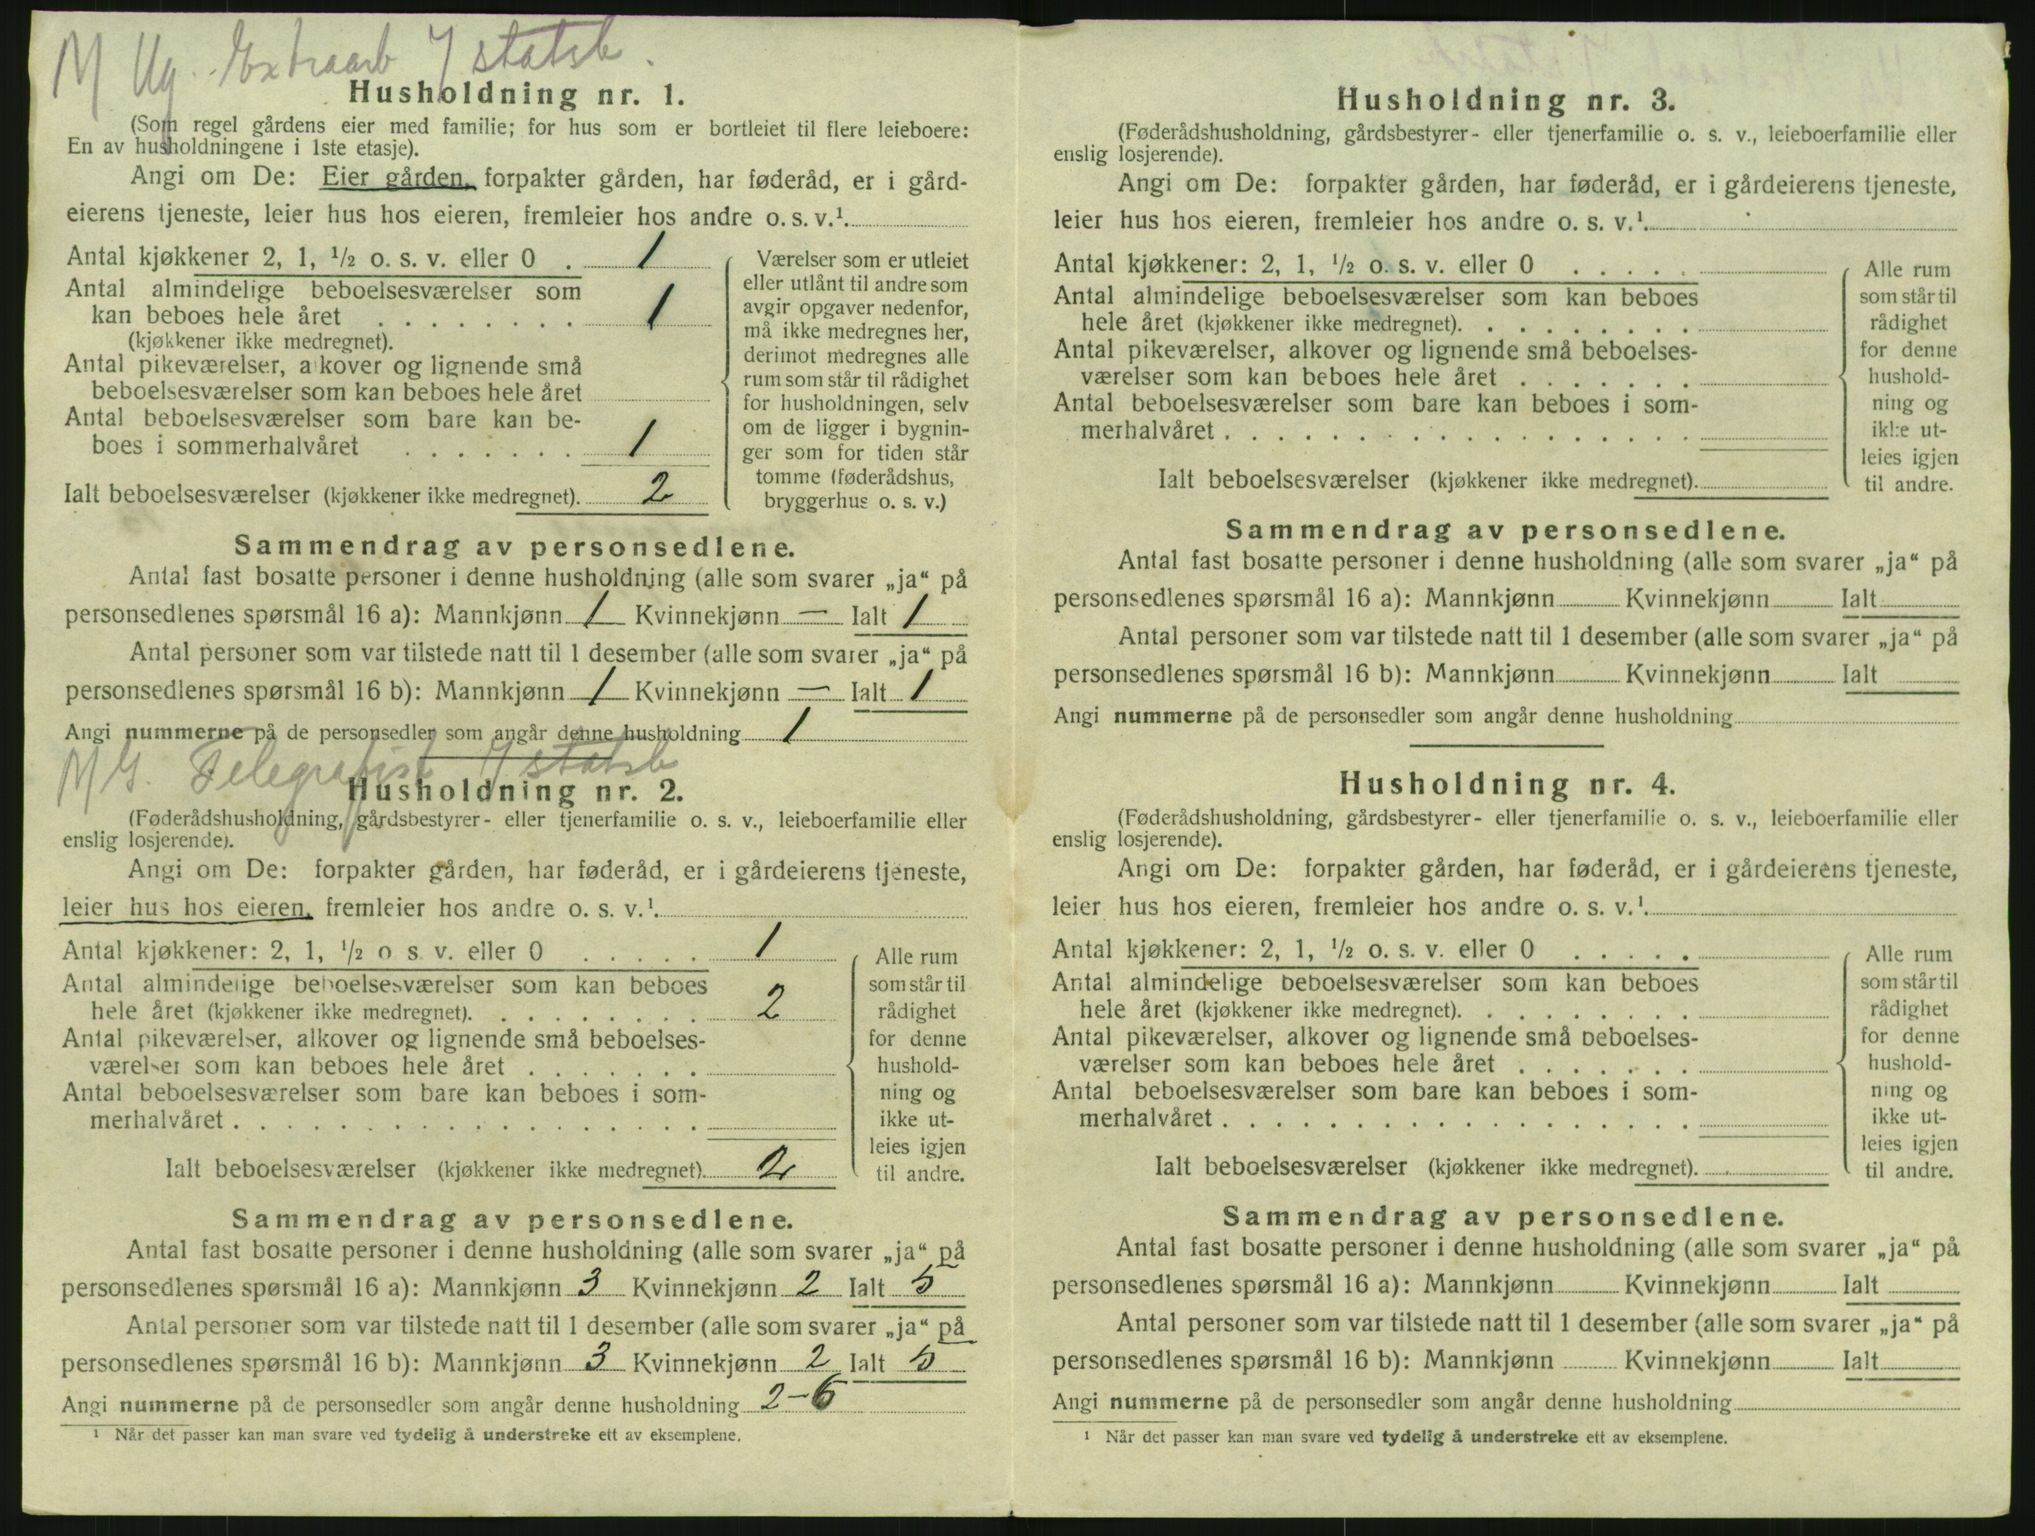 M Ug. Extraarb 7 statsb.
Husholdning nr. 1.
(Som regel gårdens eier med familie; for hus som er bortleiet til flere leieboere:
En av husholdningene i 1ste etasje).
Angi om De: Eier gården, forpakter gården, har føderåd, er i gård-
eierens tjeneste, leier hus hos eieren, fremleier hos andre o. s. v.¹.
Antal kjøkkener 2, 1, ½ o. s. v. eller 0 . 1
Antal almindelige beboelsesværelser som
kan beboes hele året . . . . . . . . 1
(kjøkkener ikke medregnet).
Antal pikeværelser, alkover og lignende små
beboelsesværelser som kan beboes hele året
Antal beboelsesværelser som bare kan be-
boes i sommerhalvåret . . . . . . . 1
Ialt beboelsesværelser (kjøkkener ikke medregnet). 2
Værelser som er utleiet
eller utlånt til andre som
avgir opgaver nedenfor,
må ikke medregnes her,
derimot medregnes alle
rum som står til rådighet
for husholdningen, selv
om de ligger i bygnin-
ger som for tiden står
tomme (føderådshus,
bryggerhus o. s. v.)
Sammendrag av personsedlene.
Antal fast bosatte personer i denne husholdning (alle som svarer „ja“ på
personsedlenes spørsmål 16 a): Mannkjønn 1 Kvinnekjønn — Ialt 1
Antal personer som var tilstede natt til 1 desember (alle som svarer „ja“ på
personsedlenes spørsmål 16 b): Mannkjønn 1 Kvinnekjønn — Ialt 1
Angi nummerne på de personsedler som angår denne husholdning 1
M G. Telegrafist 7 statsb
Husholdning nr. 2.
(Føderådshusholdning, gårdsbestyrer- eller tjenerfamilie o. s. v., leieboerfamilie eller
enslig losjerende).
Angi om De: forpakter gården, har føderåd, er i gårdeierens tjeneste,
leier hus hos eieren, fremleier hos andre o. s. v.¹.
Antal kjøkkener: 2, 1, ½ o s. v. eller 0 . . . . . 1
Antal almindelige beboelsesværelser som kan beboes
hele året (kjøkkener ikke medregnet). . . . . . . . . 2
Antal pikeværelser, alkover og lignende små beboelses-
værelser som kan beboes hele året . . . . . . .
Antal beboelsesværelser som bare kan beboes i som-
merhalvåret . . . . . . . . . . . . . . . . . .
Ialt beboelsesværelser (kjøkkener ikke medregnet). 2
Alle rum
som står til
rådighet
for denne
hushold-
ning og
ikke ut-
leies igjen
til andre.
Sammendrag av personsedlene.
Antal fast bosatte personer i denne husholdning (alle som svarer „ja“ på
personsedlenes spørsmål 16 a): Mannkjønn 3 Kvinnekjønn 2 Ialt 5
Antal personer som var tilstede natt til 1 desember (alle som svarer „ja“ på
personsedlenes spørsmål 16 b): Mannkjønn 3 Kvinnekjønn 2 Ialt 5
Angi nummerne på de personsedler som angår denne husholdning 2-6
¹ Når det passer kan man svare ved tydelig å understreke ett av eksemplene.
Husholdning nr. 3.
(Føderådshusholdning, gårdsbestyrer- eller tjenerfamilie o. s. v., leieboerfamilie eller
enslig losjerende).
Angi om De: forpakter gården, har føderåd, er i gårdeierens tjeneste,
leier hus hos eieren, fremleier hos andre o. s. v.¹.
Antal kjøkkener: 2, 1, ½ o. s. v. eller 0 . . . . .
Antal almindelige beboelsesværelser som kan beboes
hele året (kjøkkener ikke medregnet). . . . . . . . .
Antal pikeværelser, alkover og lignende små beboelses-
værelser som kan beboes hele året . . . . . . .
Antal beboelsesværelser som bare kan beboes i som-
merhalvåret . . . . . . . . . . . . . . . . . .
Ialt beboelsesværelser (kjøkkener ikke medregnet).
Alle rum
som står til
rådighet
for denne
hushold-
ning og
ikke ut-
leies igjen
til andre.
Sammendrag av personsedlene.
Antal fast bosatte personer i denne husholdning (alle som svarer „ja“ på
personsedlenes spørsmål 16 a): Mannkjønn Kvinnekjønn Ialt
Antal personer som var tilstede natt til 1 desember (alle som svarer „ja“ på
personsedlenes spørsmål 16 b): Mannkjønn Kvinnekjønn Ialt
Angi nummerne på de personsedler som angår denne husholdning
Husholdning nr. 4.
(Føderådshusholdning, gårdsbestyrer- eller tjenerfamilie o. s. v., leieboerfamilie eller
enslig losjerende).
Angi om De: forpakter gården, har føderåd, er i gårdeierens tjeneste,
leier hus hos eieren, fremleier hos andre o. s. v.¹.
Antal kjøkkener: 2, 1, ½ o. s. v. eller 0 . . . . .
Antal almindelige beboelsesværelser som kan beboes
hele året (kjøkkener ikke medregnet). . . . . . . . .
Antal pikeværelser, alkover og lignende små beboelses-
værelser som kan beboes hele året . . . . . . .
Antal beboelsesværelser som bare kan beboes i som-
merhalvåret . . . . . . . . . . . . . . . . . .
Ialt beboelsesværelser (kjøkkener ikke medregnet).
Alle rum
som står til
rådighet
for denne
hushold-
ning og
ikke ut-
leies igjen
til andre.
Sammendrag av personsedlene.
Antal fast bosatte personer i denne husholdning (alle som svarer „ja“ på
personsedlenes spørsmål 16 a): Mannkjønn Kvinnekjønn Ialt
Antal personer som var tilstede natt til 1 desember (alle som svarer „ja“ på
personsedlenes spørsmål 16 b): Mannkjønn Kvinnekjønn Ialt
Angi nummerne på de personsedler som angår denne husholdning
¹ Når det passer kan man svare ved tydelig å understreke ett av eksemplene.